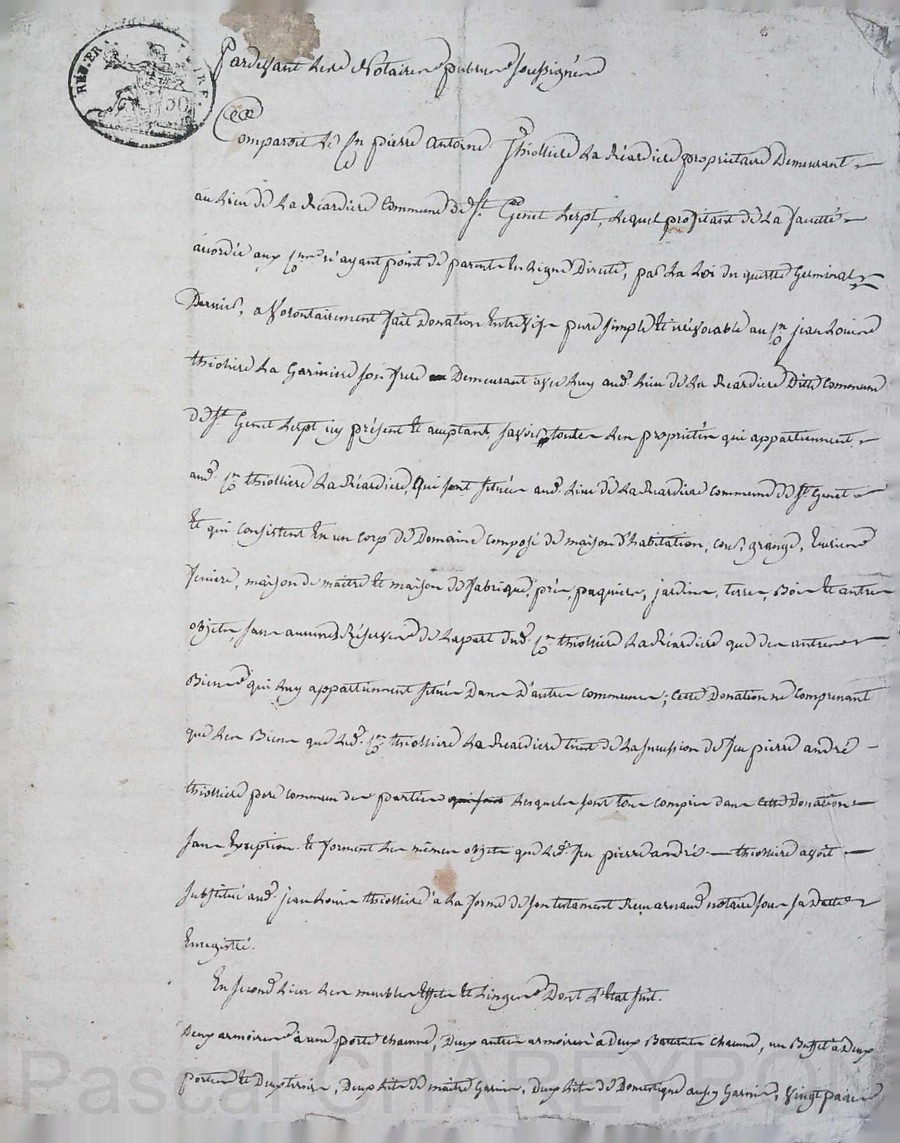 RÉP. FR.
50
Pardevant les Notaires publics soussignés
Comparoit le Cn pierre antoine Thiolliere La Réardiere propriétaire Demeurant
au Lieu de La Réardiere Commune de St. Genet Lerpt, Lequel profitant de La faculté
accordée aux Cns n'ayant point de parents En Ligne Directe, par La Loi du quatre Germinal
Dernier, a Volontairement fait Donation Entrevifs pure simple et irrévocable au Cn jean Louis
thioliere La Gariniere son frere Demeurant avec Luy aud. Lieu de La Réardiere Ditte Commune
de St Genet Lerpt icy présent et acceptant, savoir toutes Les propriétés qui appartiennent
aud. Cn thiolliere La Réardiere, qui sont situées aud. Lieu de La Réardiere commune de St Genet
Et qui consistent En un corp de Domaine composé de maison d'habitation, cour, grange, Ecuries
feniere, maison de maitre et maison de fabrique, prés, paquiers, jardins, terres, Bois et autres
objets, sans aucunes Réserves de La part dud. Cn thiolliere La Réardiere que des autres
Biens qui Luy appartiennent situés Dans D'autres communes; cette Donation ne comprenant
que Les Biens que Led. Cn thiolliere La Réardiere tient de La succession de feu pierre andré
thiolliere pere commun des parties Lesquels sont tous compris dans cette Donation
sans Exception et forment Les mêmes objets que Led. feu pierre andré thiolliere avoit
substitué aud. jean Louis thiolliere à La forme de son testament Reçu arnaud notaire sous sa datte
Enregistré.
En second Lieu Les meubles Effets et Linges Dont L'Etat suit.
Deux armoires à une porte chacune, Deux autres armoires à deux Battants chacune, un Buffet à Deux
portes et Deux tiroirs, Deux Lits de maitre Garnis, Deux Lits de Domestique aussy Garnis, Vingt paires
Pascal CHAREYRON